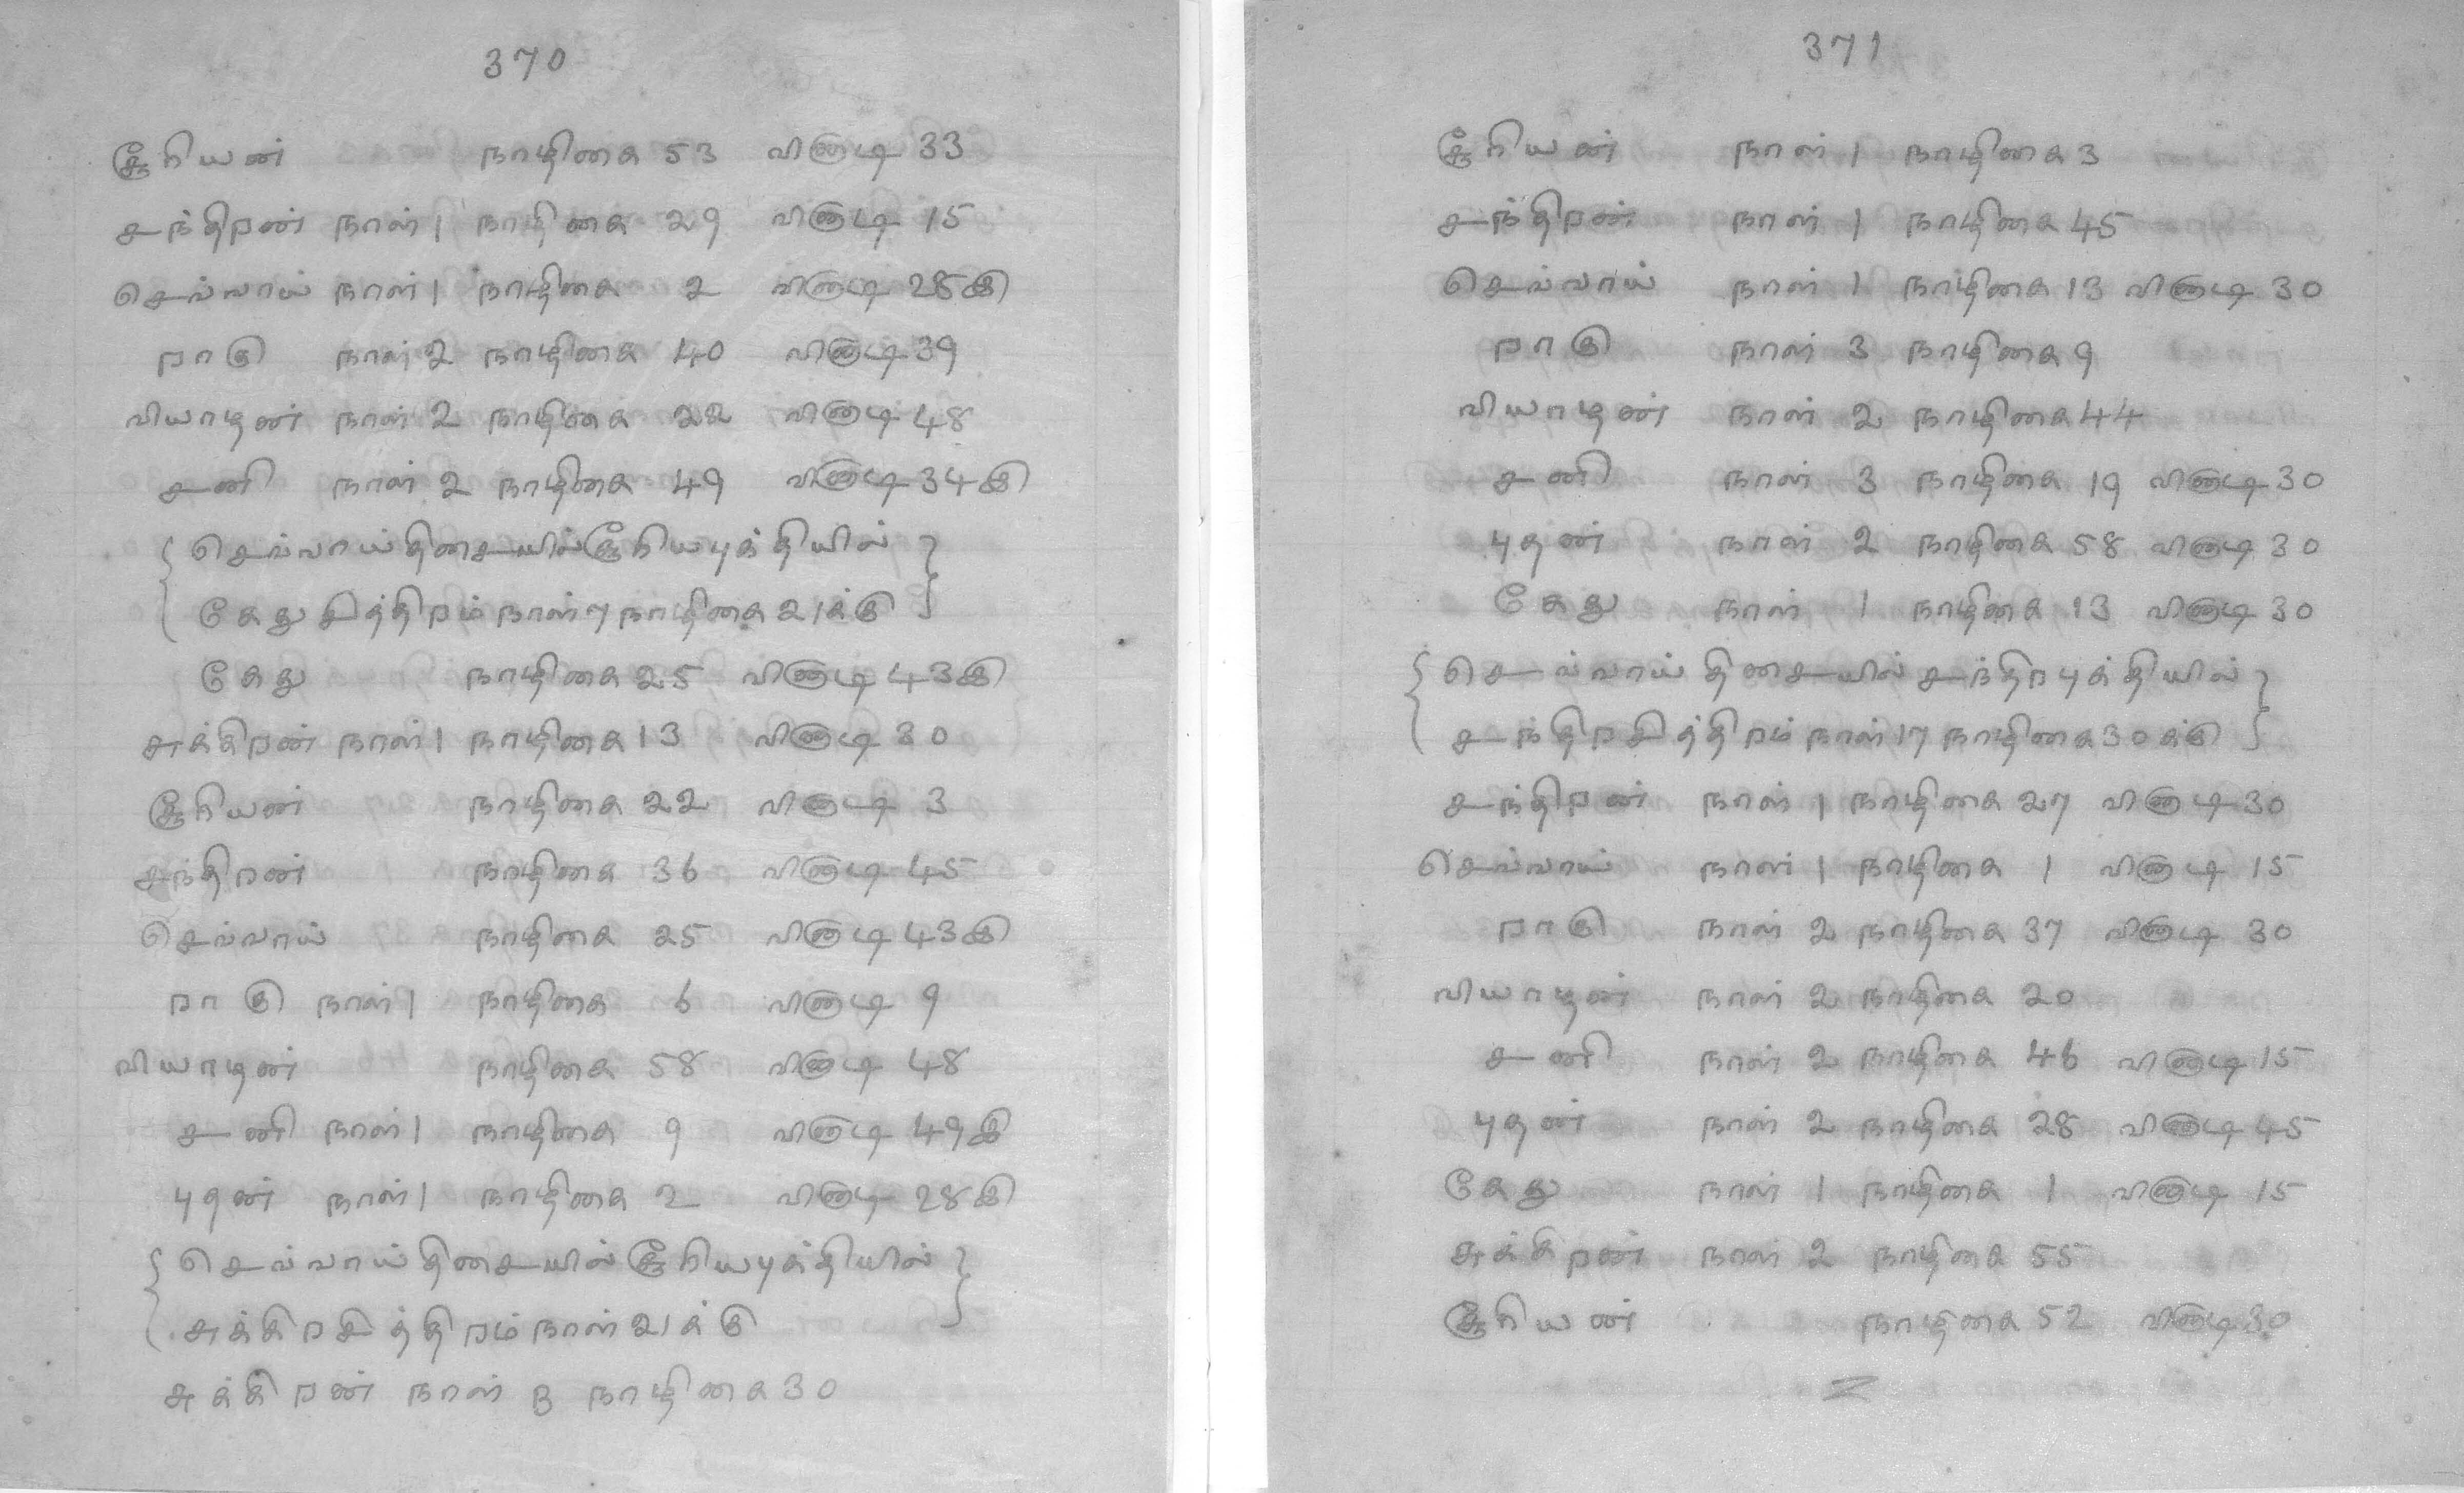 370
சூரியன் நாழிகை 53 வினாடி 33
சந்திறன் நாள் 1 நாழிகை 29 வினாடி 15
செவ்வாய் நாள் 1 நாழிகை 2 வினாடி 28இ
றாகு நாள் 2 நாழிகை 40 வினாடி 39
வியாழன் நாள் 2 நாழிகை 22 வினாடி 48
சனி நாள் 2 நாழிகை 49 வினாடி 34இ
{ செவ்வாய்திசையில்சூரியபுக்தியில் }
{ கேதுசித்திறம்நாள்7நாழிகை21க்கு }
கேது நாழிகை 25 வினாடி 43இ
சுக்கிறன் நாள் 1 நாழிகை 13 வினாடி 30
சூரியன் நாழிகை 22 வினாடி 3
சந்திறன் நாழிகை 36 வினாடி 45
செவ்வாய் நாழிகை 25 வினாடி 43இ
றாகு நாள் 1 நாழிகை 6 வினாடி 9
வியாழன் நாழிகை 58 வினாடி 48
சனி நாள் 1 நாழிகை 9 வினாடி 49இ
புதன் நாள் 1 நாழிகை 2 வினாடி 28இ
{ செவ்வாய்திசையில்சூரியபுக்தியில் }
{ சுக்கிறசித்திறம்நாள்21க்கு }
சுக்கிறன் நாள் 3 நாழிகை 30
371
சூரியன் நாள் 1 நாழிகை 3
சந்திறன் நாள் 1 நாழிகை 45
செவ்வாய் நாள் 1 நாழிகை 13 வினாடி 30
றாகு நாள் 3 நாழிகை 9
வியாழன் நாள் 2 நாழிகை 44
சனி நாள் 3 நாழிகை 19 வினாடி 30
புதன் நாள் 2 நாழிகை 58 வினாடி 30
கேது நாள் 1 நாழிகை 13 வினாடி 30
{ செவ்வாய் திசையில் சந்திறபுக்தியில் }
{ சந்திறசித்திறம்நாள்17நாழிகை30க்கு }
சந்திறன் நாள் 1 நாழிகை 27 வினாடி 30
செவ்வாய் நாள் 1 நாழிகை 1 வினாடி 15
றாகு நாள் 2 நாழிகை 37 வினாடி 30
வியாழன் நாள் 2 நாழிகை 20
சனி நாள் 2 நாழிகை 46 வினாடி 15
புதன் நாள் 2 நாழிகை 28 வினாடி 45
கேது நாள் 1 நாழிகை 1 வினாடி 15
சுக்கிறன் நாள் 2 நாழிகை 55
சூரியன் நாழிகை 52 வினாடி 30